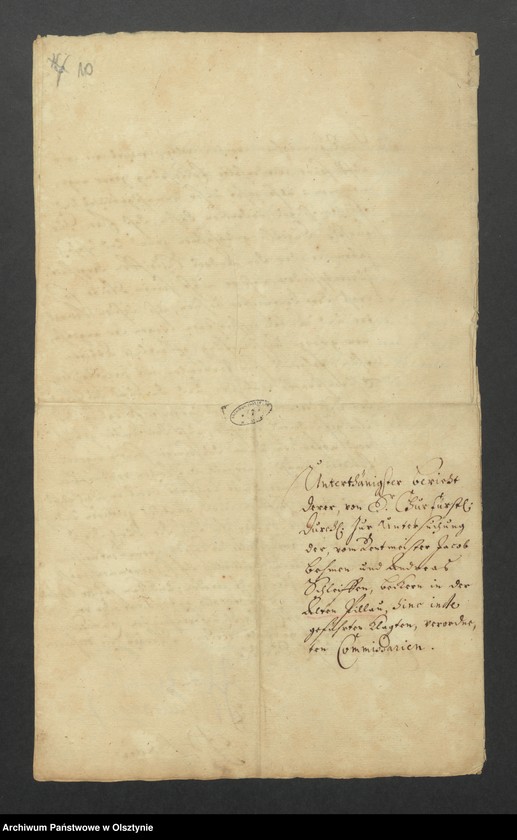 10
Unterthänigster bericht
derer, von S. Churfürstl:
Durchl: zur Untersuchung
der, vom Rentmeister Jacob
Bohmen und Andreas
Schleiffen, beckern in der
Alten Pillau, hinc inde
geführten Klagten, verordne,
ten Commissarien.
Archiwum Państwowe w Olsztynie